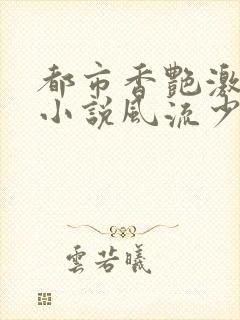 都市香艷激
小説風流少
雲若曦